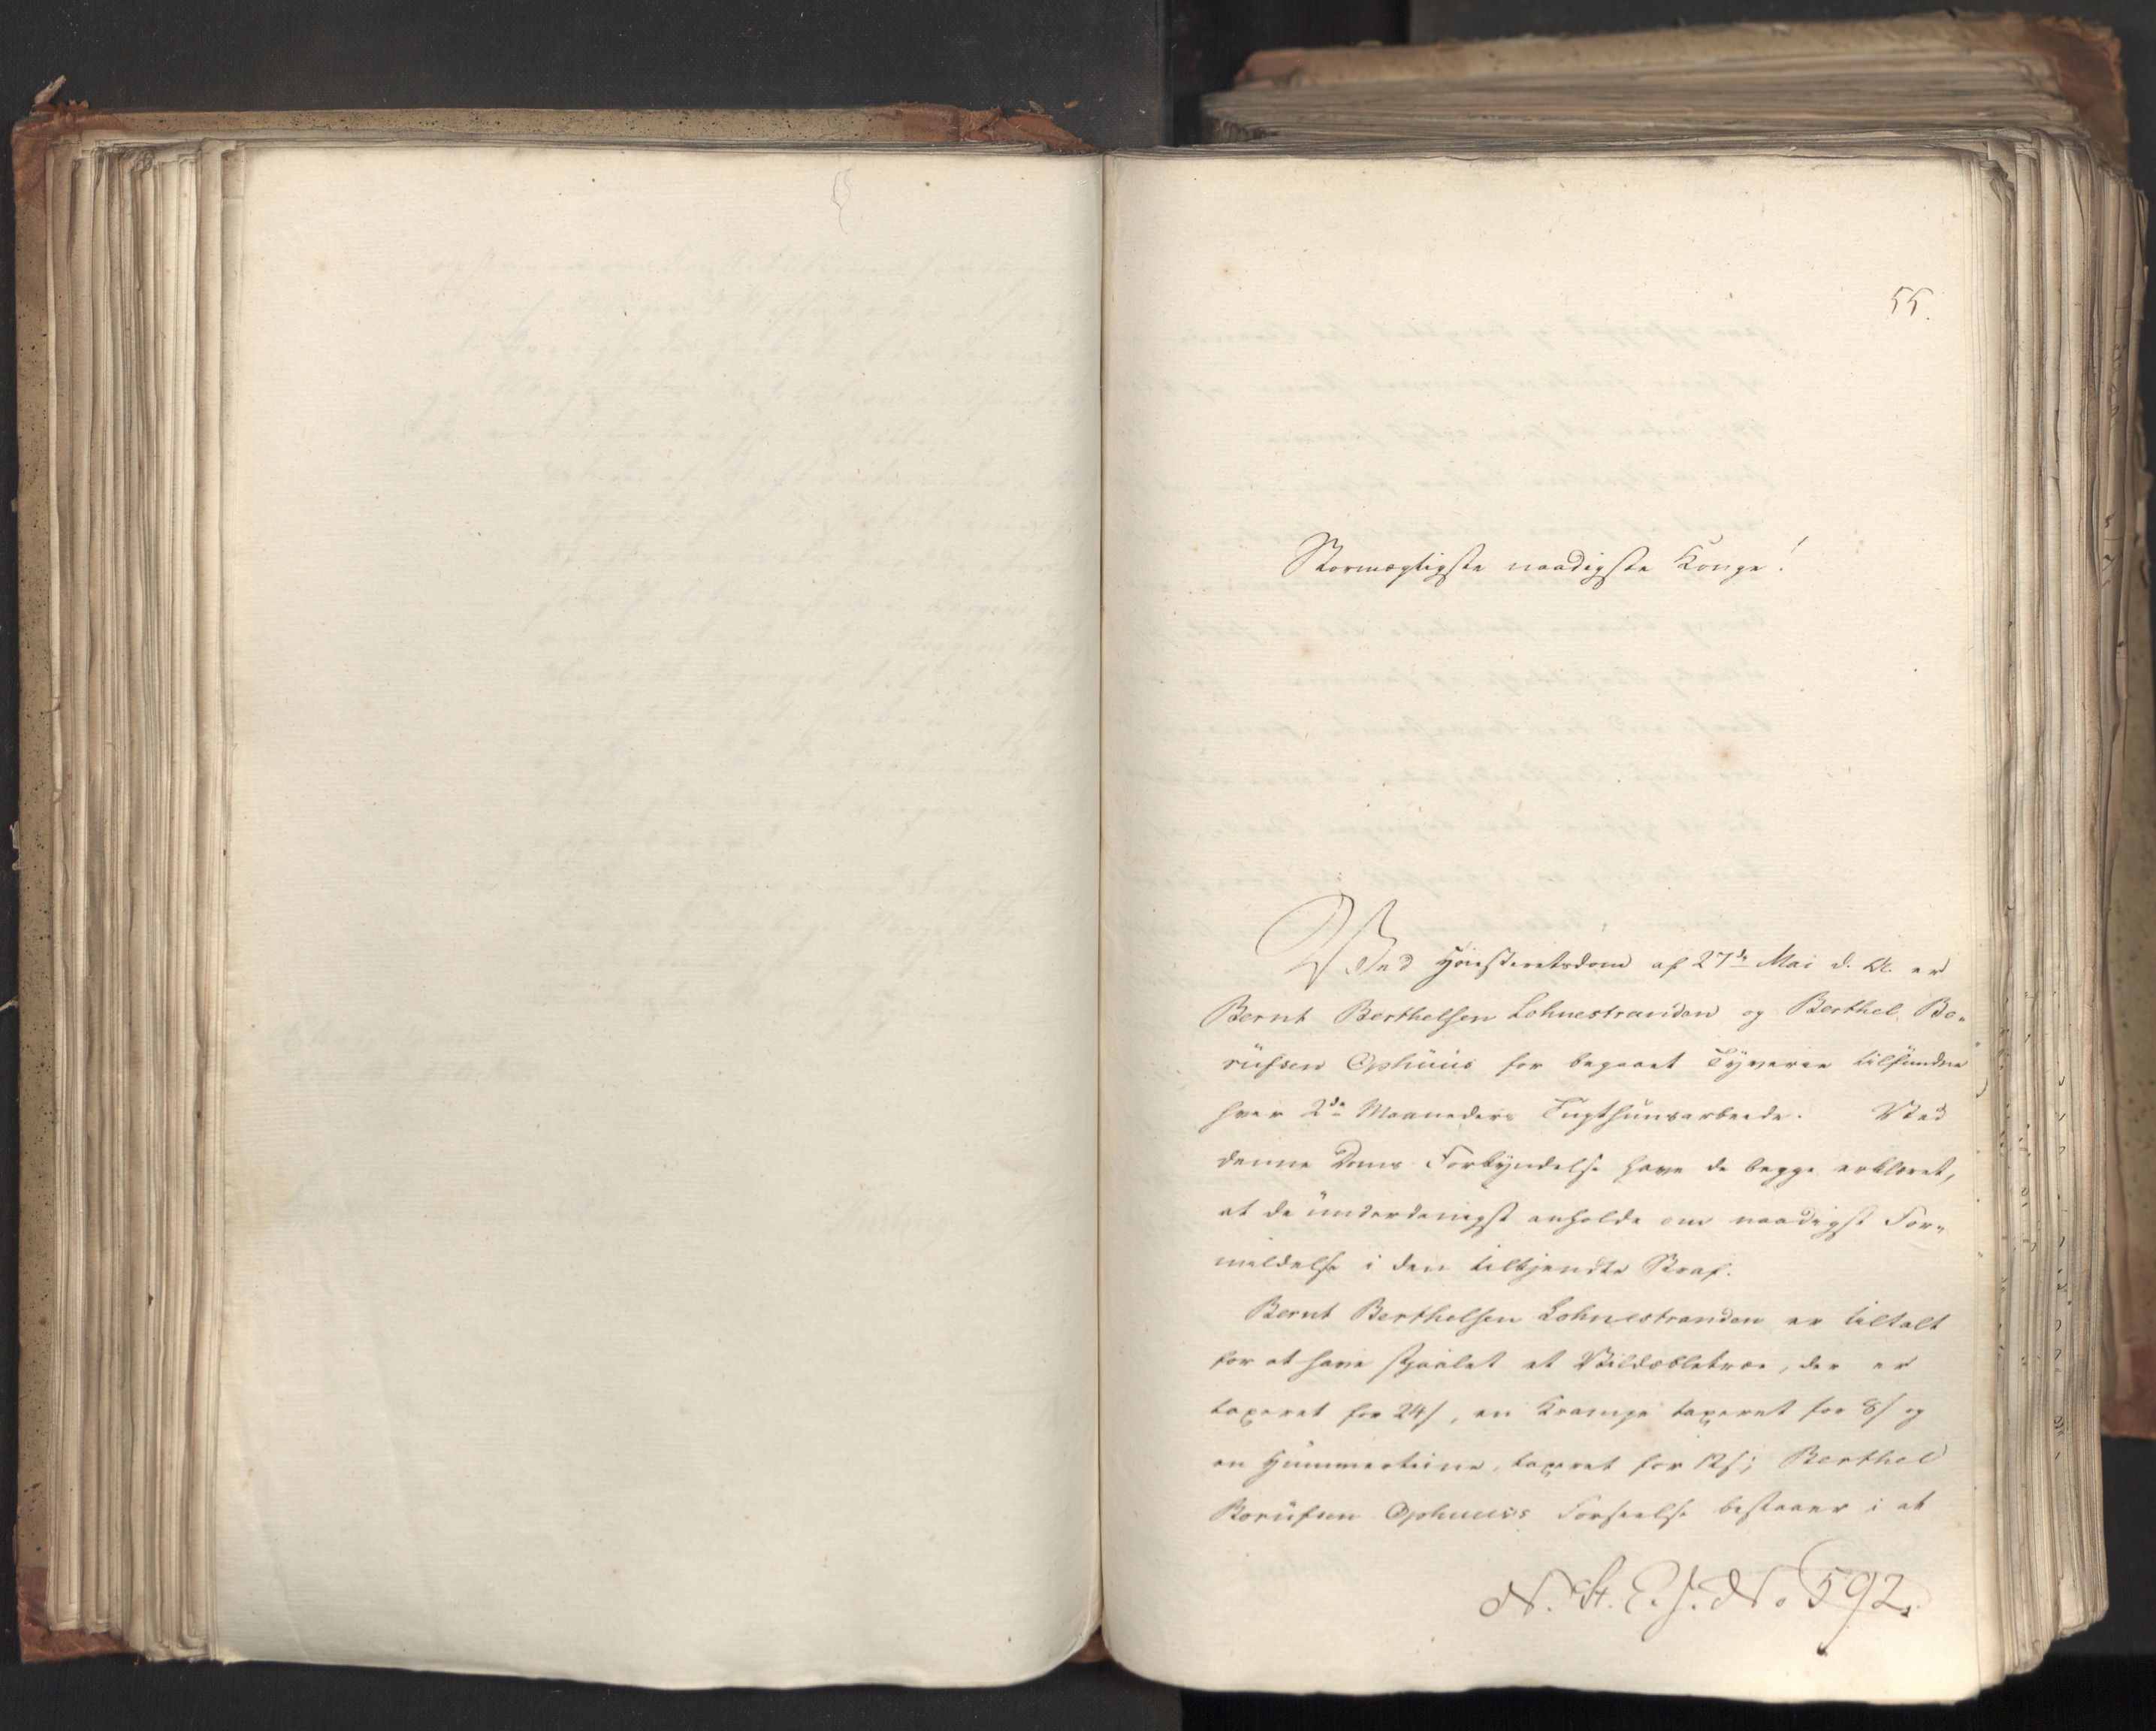 55.
Stormægtigste naadigste Konge!
Ved Høiesteretsdom af 27de Mai d. A. er
Bernt Berthelsen Lohnestranden og Berthel Bo-
rüsen Ophuüs for begaaet Tyverie tilfunden
hver 2de Maaneders Tugthuusarbeide. Ved
denne Doms Forkyndelse have de begge erklæret,
at de underdanigst anholde om naadigst For-
mildelse i den tilkjendte Straf.
Bernt Berthelsen Lohnestranden er tiltalt
for at have stjaalet et Vildæbletræe, der er
taxeret for 24 s, en Krampe taxeret for 8 s og
en Hummerteine, taxeret for 12 s; Berthel
Borüsen Ophuuss Forseelse bestaaer i at
N. St. E. J. No 592.